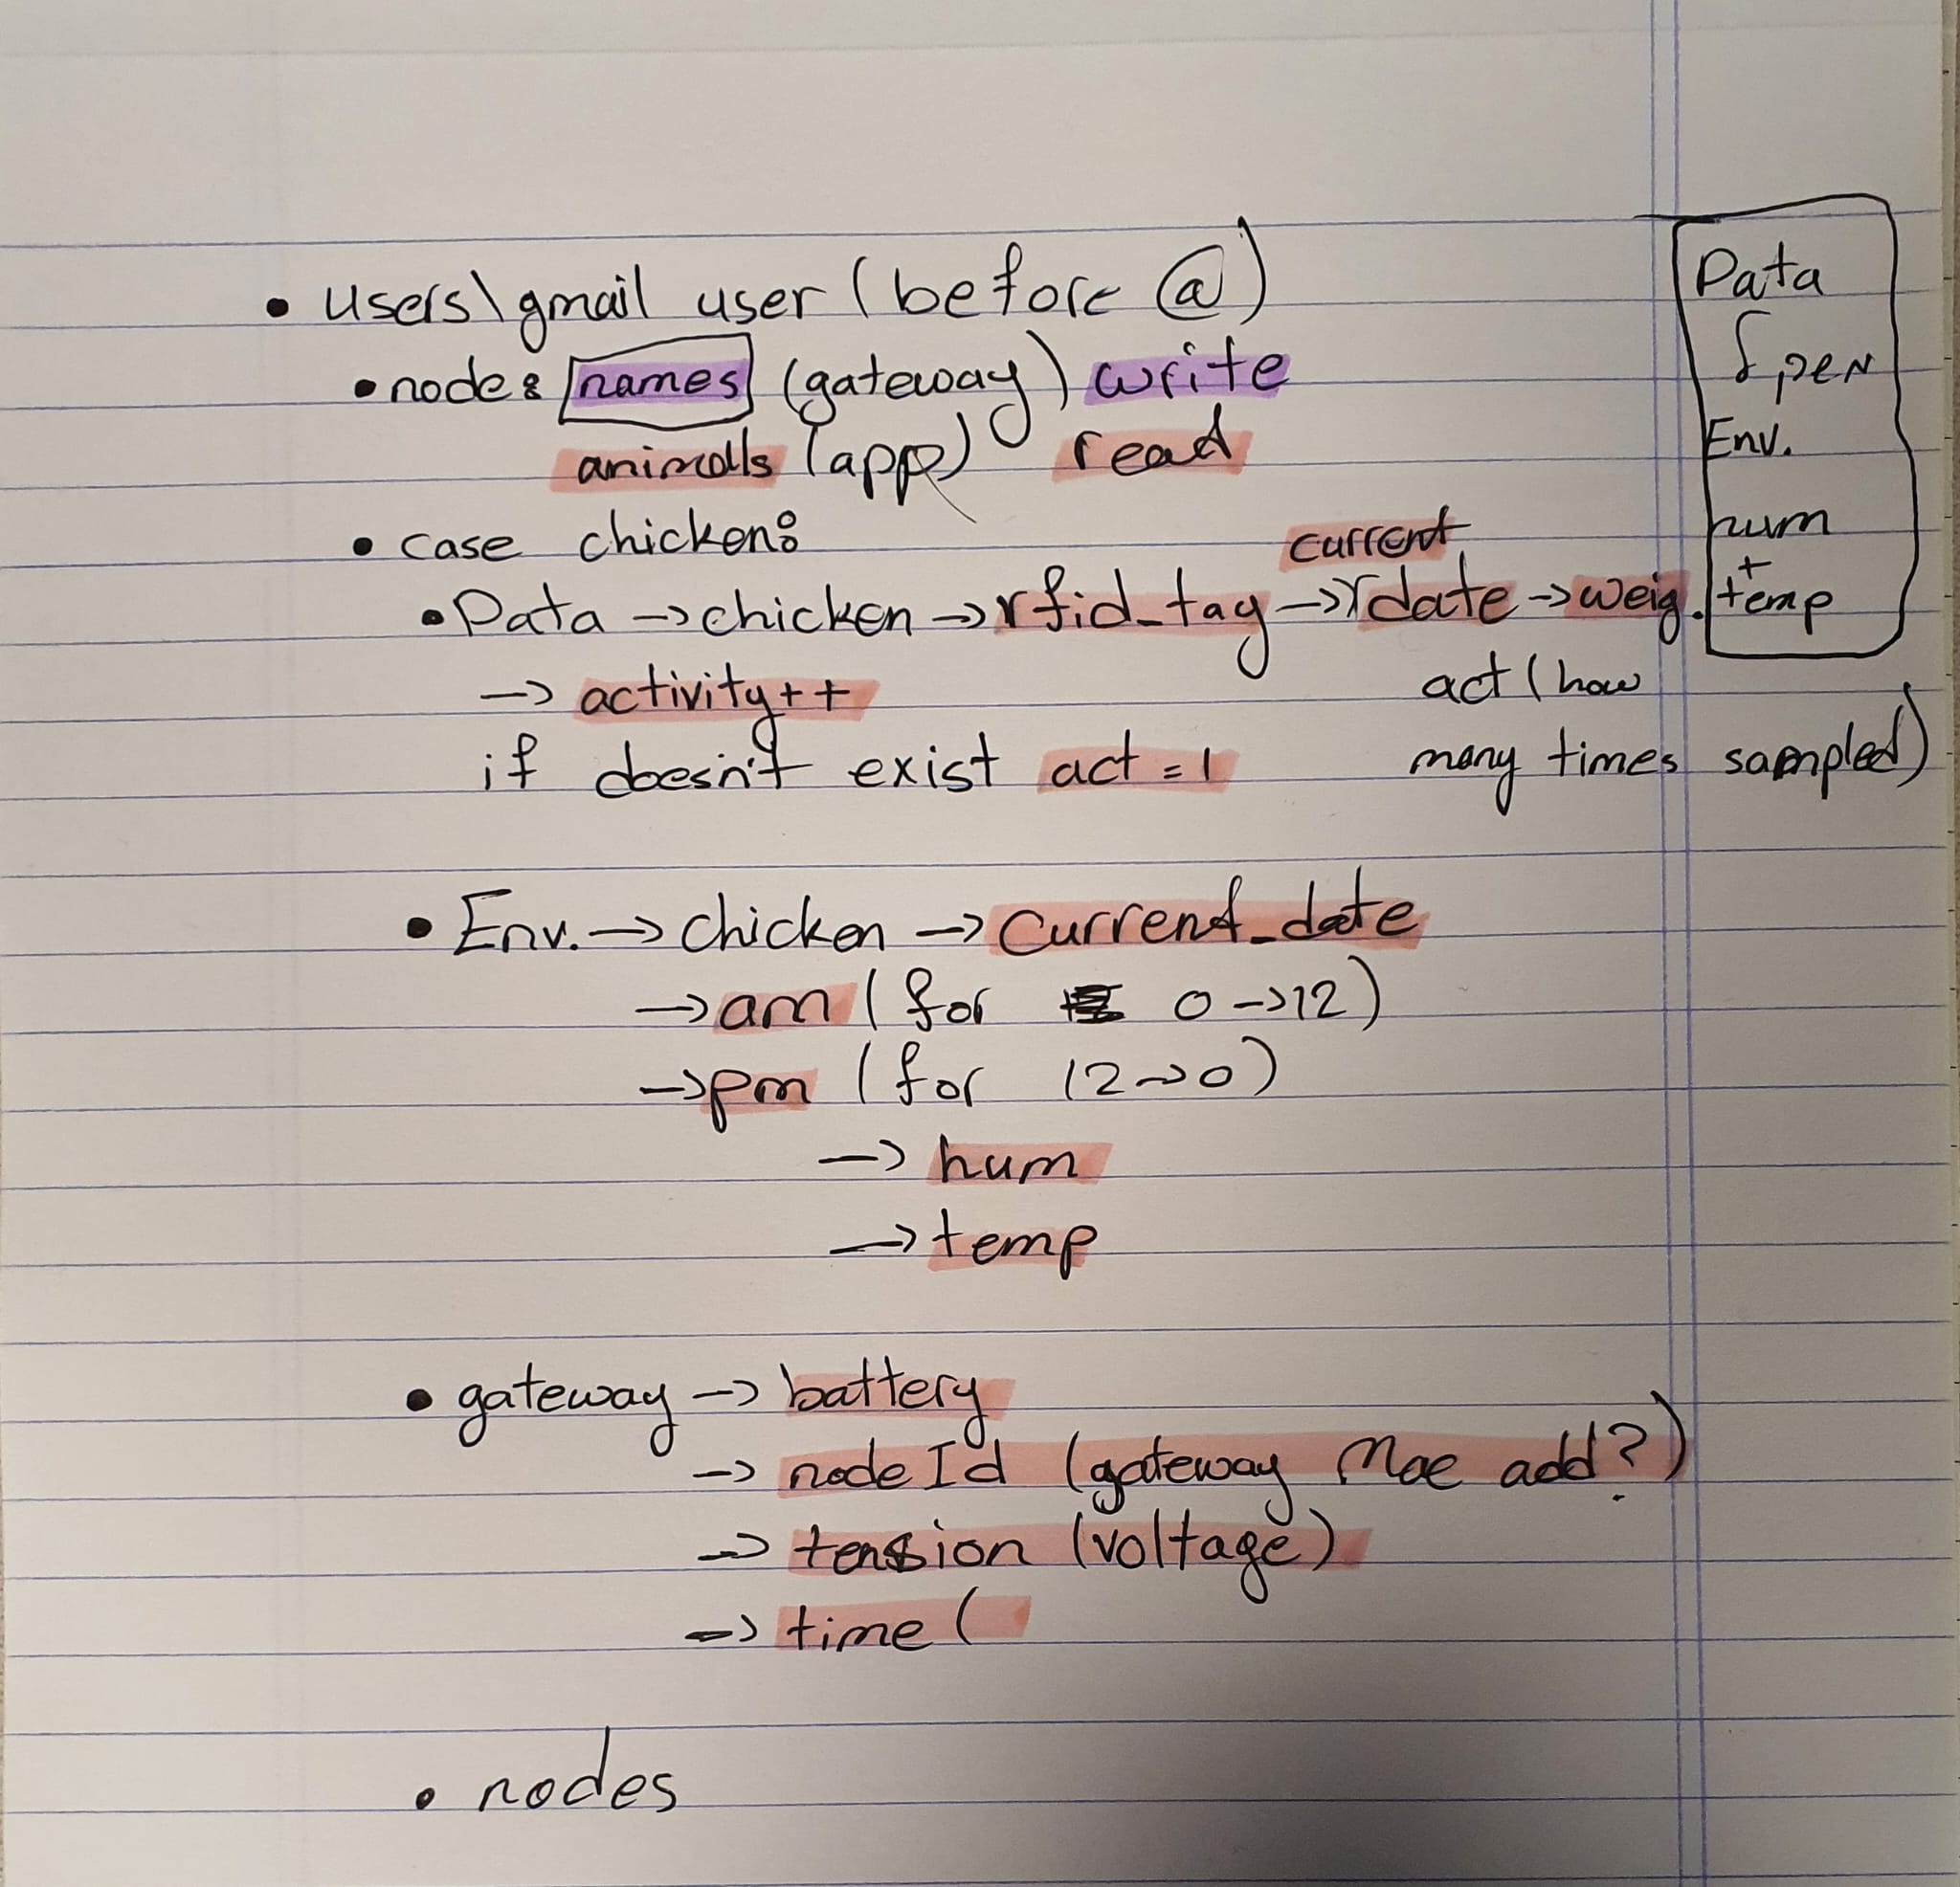 • users\gmail user (before @)
• node: names (gateway) write
animalls (app) read
• case chicken:
current
• Data -> chicken -> rfid_tag -> date -> weig.
-> activity++
act (how
if doesn't exist act = 1
many times sampled)
• Env. -> chicken -> current_date
-> am (for 0 -> 12)
-> pm (for 12 -> 0)
-> hum
-> temp
• gateway -> battery
-> node Id (gateway Mac add?)
-> tension (voltage)
-> time (
• nodes
Data
pen
Env.
hum
+
temp